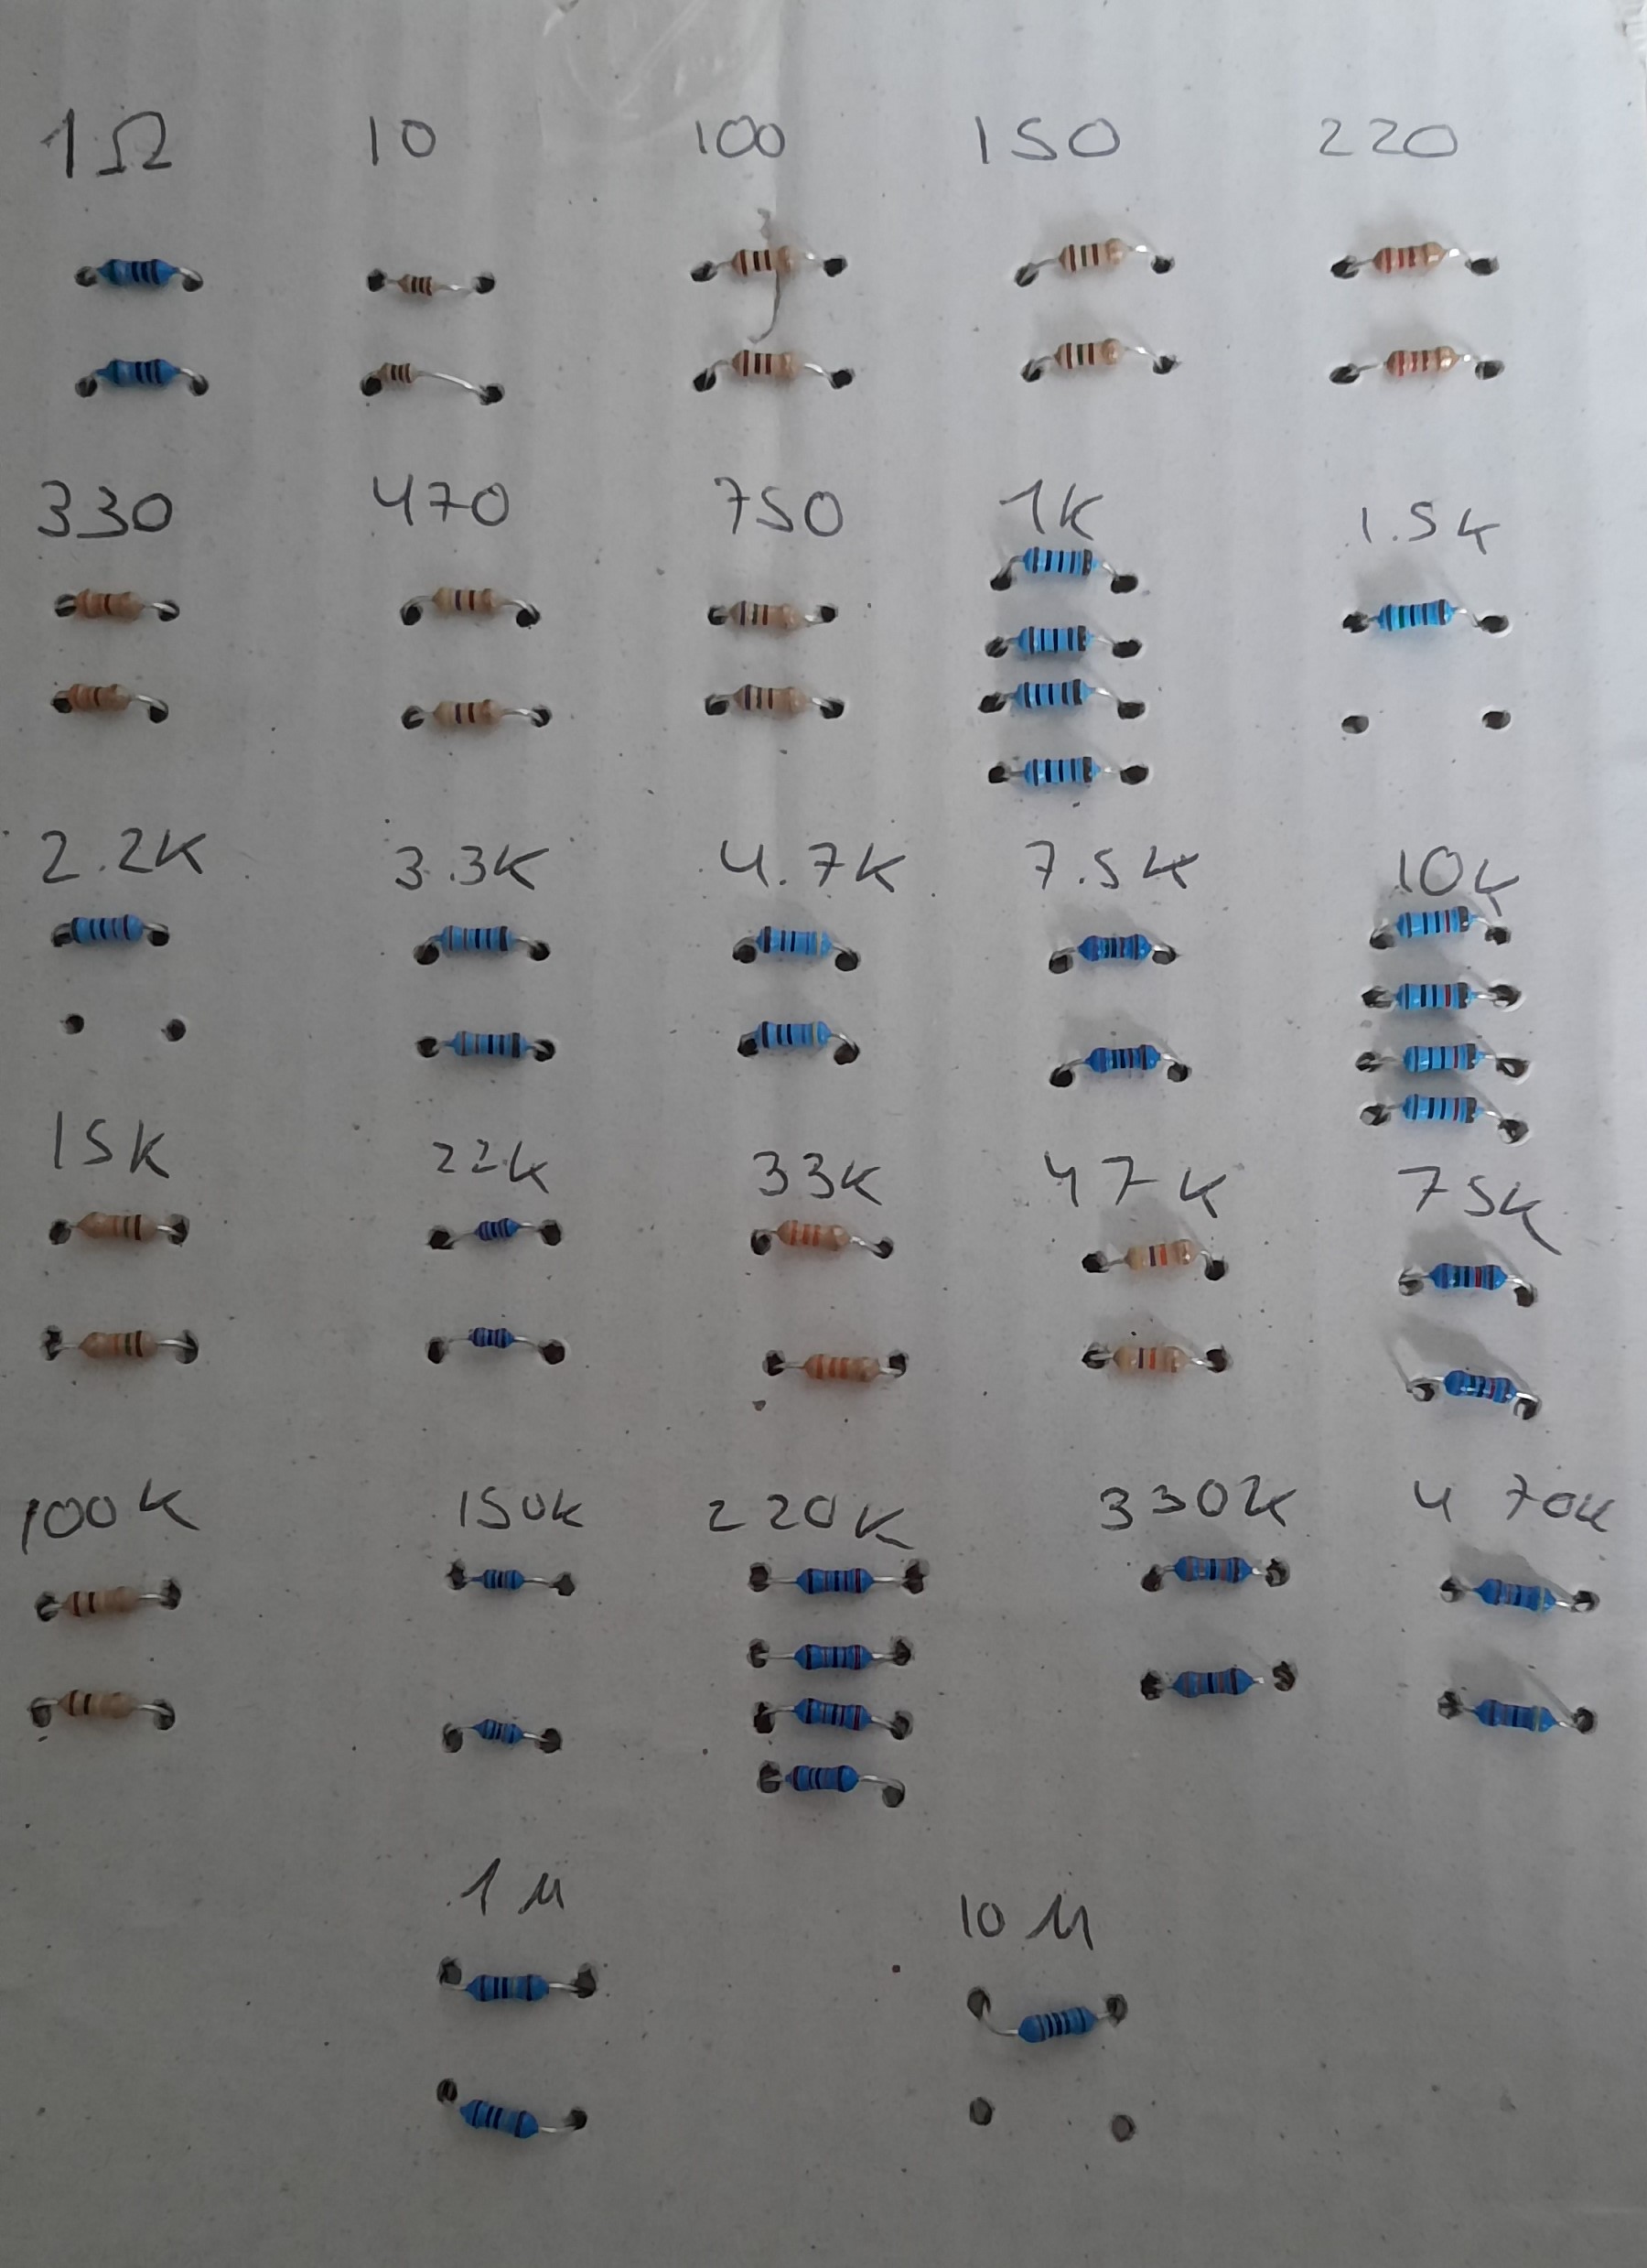 1Ω 10 100 150 220
330 470 750 1K 1.5K
2.2K 3.3K 4.7K 7.5K 10K
15K 22K 33K 47K 75K
100K 150K 220K 330K 470K
1M 10M